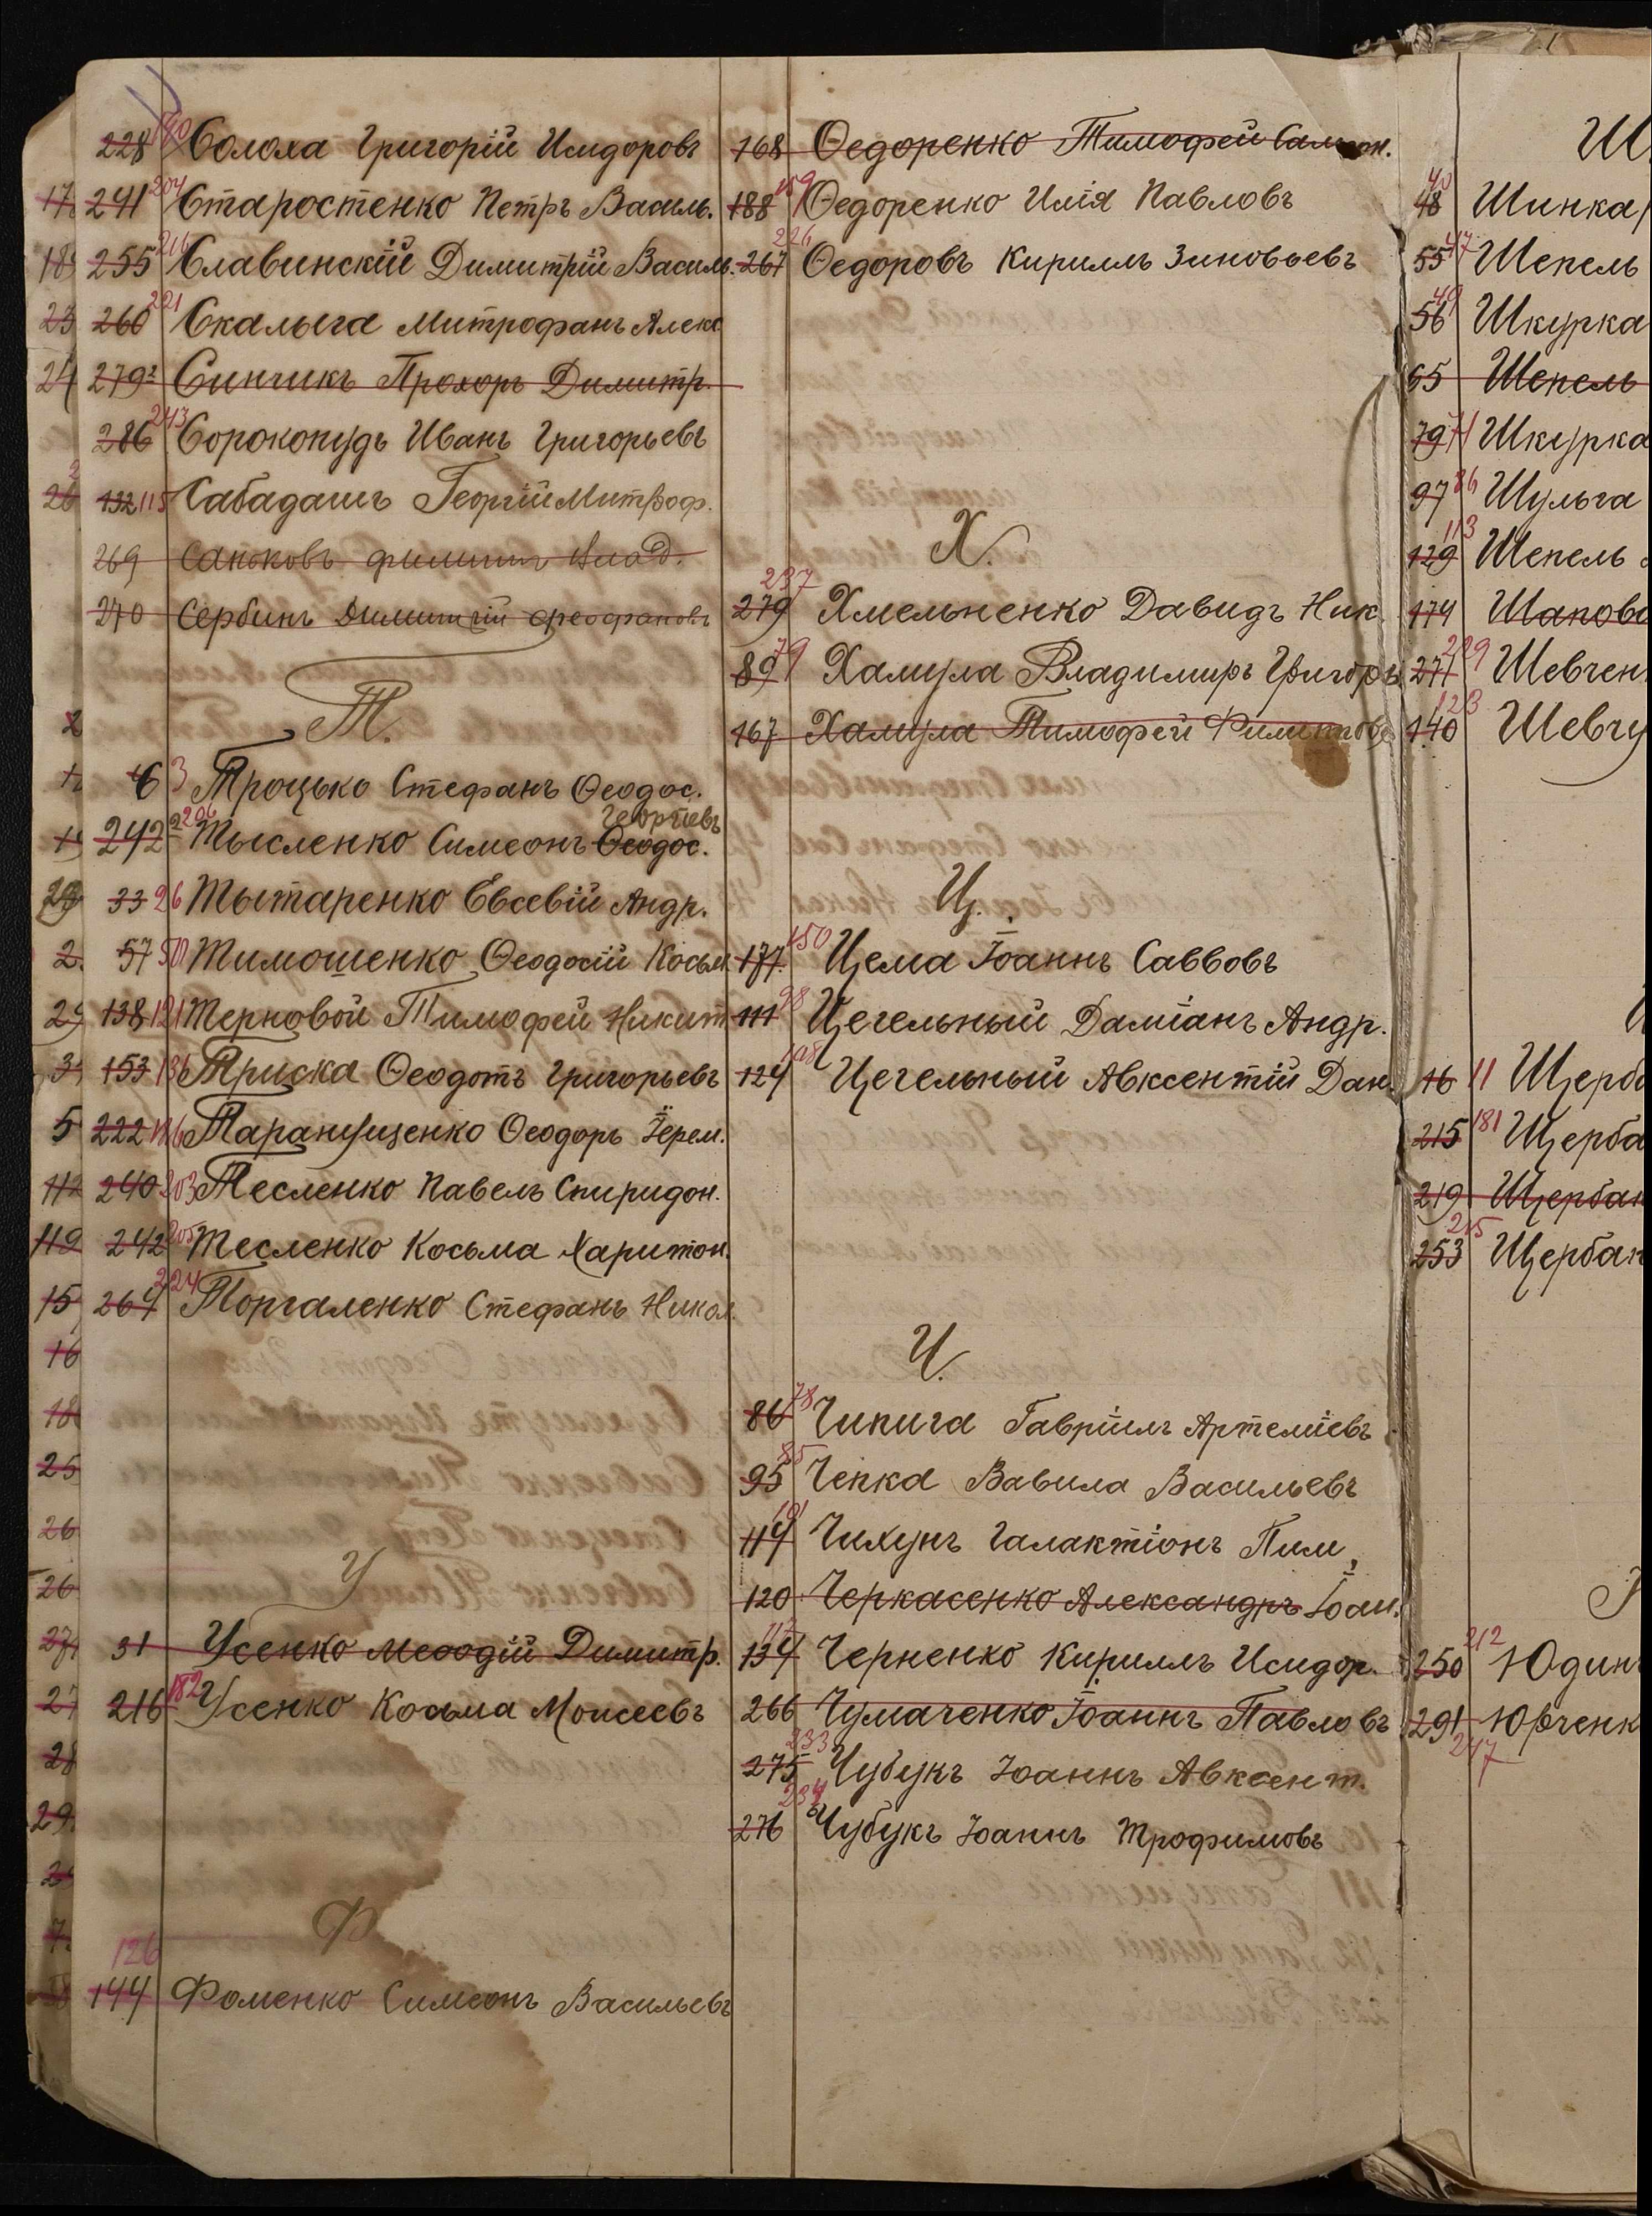 228 190 Солоха Григорій Исидоровъ
241 204 Старостенко Петръ Василь.
255 216 Славинскій Димитрій Василь.
260 221 Скалыга Митрофанъ Алекс
279² Синчикъ Прохоръ Димитр.
286 243 Сорокопудъ Иванъ Григорьевъ
132 115 Сабадашъ Георгій Митроф.
269 Саньковъ Филиппъ Влад.
270 Сербинъ Димитрій Ѳеофановъ
Т.
6 3 Троцько Стефанъ Ѳеодос.
Георгіевъ
242² 206 Тысленко Симеонъ Ѳеодос.
33 26 Тытаренко Евсевій Андр.
57 50 Тимошенко Ѳеодосій Косьм
138 121 Терновой Тимофей Никит
153 136 Триска Ѳеодотъ Григорьевъ
222 186 Таранущенко Ѳеодоръ Іерем.
240 203 Тесленко Павелъ Спиридон.
242 205 Тесленко Косьма Харитон.
264 224 Торгаленко Стефанъ Никол.
У
31 Усенко Меѳодій Димитр.
216 182 Усенко Косьма Моисеевъ
Ф
126
144 Фоменко Симеонъ Васильевъ
168 Ѳедоренко Тимофей Самсон.
188 159 Ѳедоренко Илія Павловъ
267 226 Ѳедоровъ Кириллъ Зиновьевъ
Х.
279 237 Хмельненко Давидъ Ник.
89 79 Хамула Владимиръ Григорь
167 Хамула Тимофей Филиппов
Ц.
177 150 Цема Іоаннъ Саввовъ
111 98 Цегельный Даміанъ Андр.
124 108 Цегельный Авксентій Дан.
Ч.
86 78 Чипига Гавріилъ Артеміевъ
95 85 Чепка Вавила Васильевъ
114 101 Чихунъ Галактіонъ Пим.
120 Черкасенко Александръ Іоан.
134 117 Черненко Кириллъ Исидор.
266 Чумаченко Іоаннъ Павловъ
275 233 Чубукъ Іоаннъ Авксент.
276 234 Чубукъ Іоаннъ Трофимовъ
Ш
48 40 Шинка
55 47 Шепель
56 49 Шкурка
65 Шепель
79 71 Шкурка
97 86 Шульга
129 113 Шепель
174 Шапова
271 229 Шевчен
140 123 Шевчу
16 11 Щерба
215 181 Щерба
219 Щербак
253 215 Щербак
250 212 Юдин
291 247 Юрченк